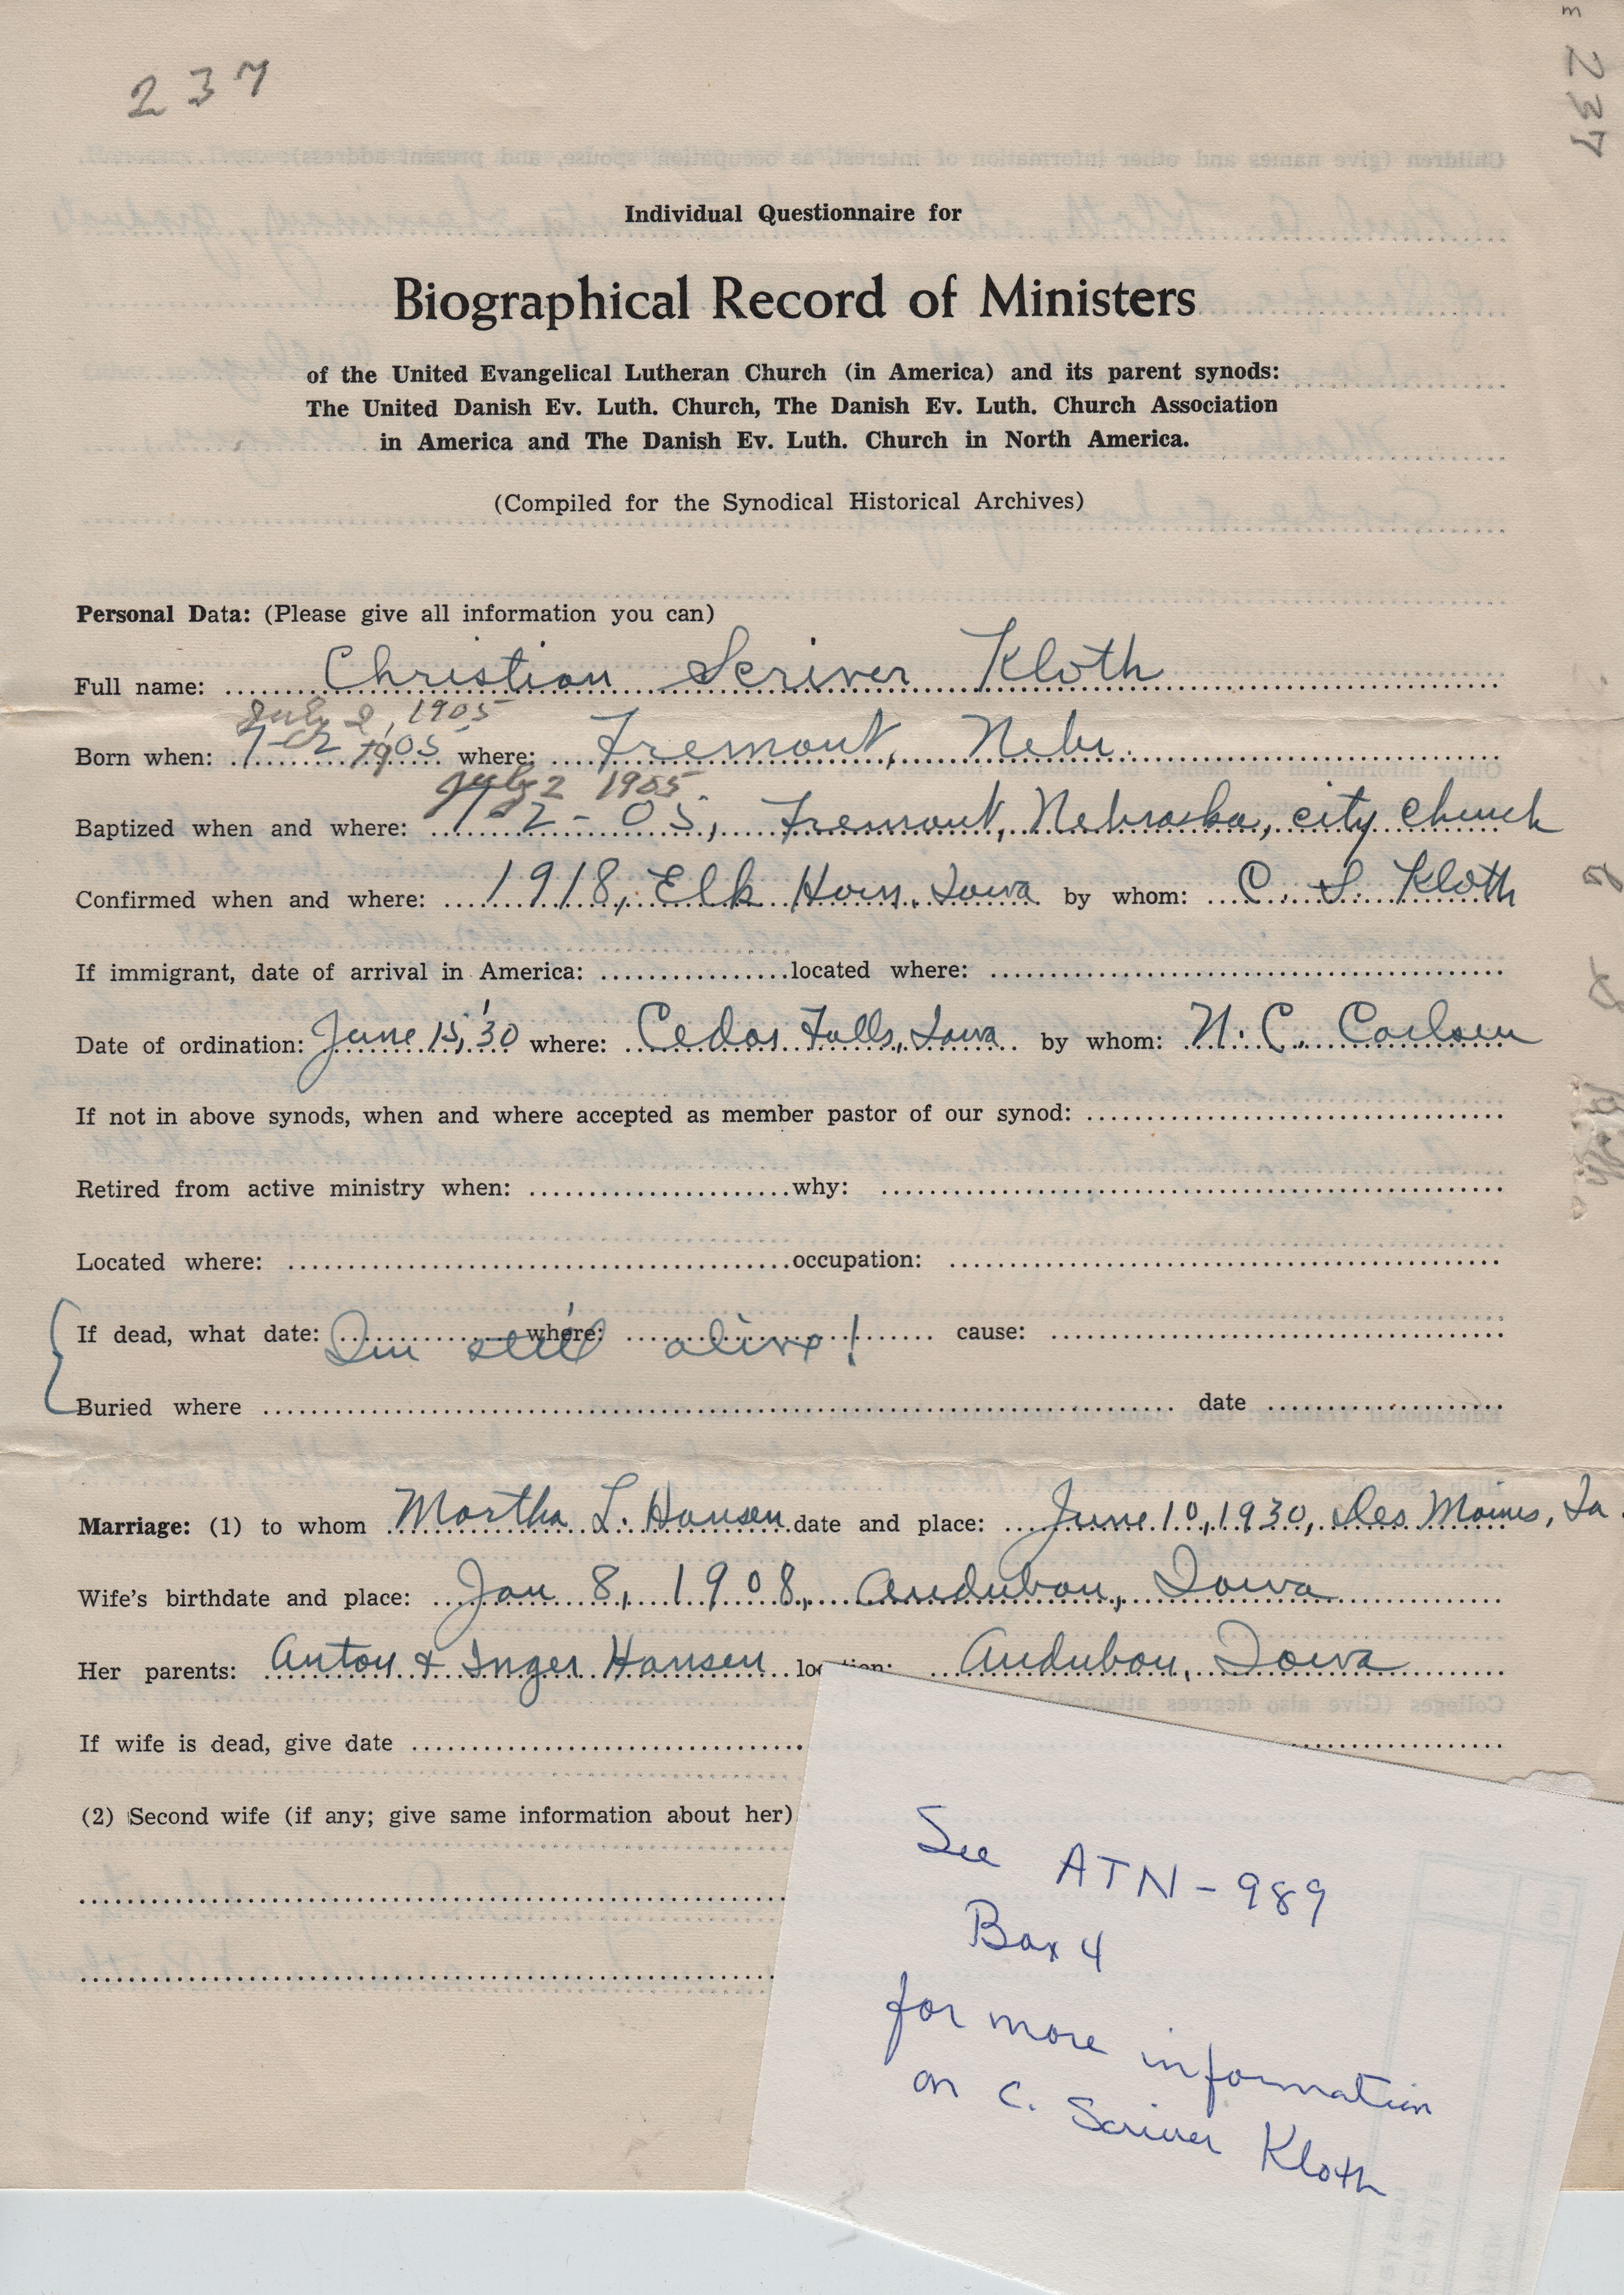 237
237
Individual Questionnaire for
Biographical Record of Ministers
of the United Evangelical Lutheran Church (in America) and its parent synods:
The United Danish Ev. Luth. Church, The Danish Ev. Luth. Church Association
in America and The Danish Ev. Luth. Church in North America.
(Compiled for the Synodical Historical Archives)
Personal Data: (Please give all information you can)
Full name: Christian Scriver Kloth
July 2, 1905
Born when: 7-2 1905 where: Fremont, Nebr.
July 2 1905
Baptized when and where: 7-2-05, Fremont, Nebraska, city church
Confirmed when and where: 1918, Elk Horn, Iowa by whom: C. S. Kloth
If immigrant, date of arrival in America: located where:
Date of ordination: June 15, '30 where: Cedar Falls, Iowa by whom: N. C. Carlsen
If not in above synods, when and where accepted as member pastor of our synod:
Retired from active ministry when: why:
Located where: occupation:
If dead, what date: where: cause:
I'm still alive!
Buried where date
Marriage: (1) to whom Martha L. Hansen date and place: June 10, 1930, Des Moines, Ia.
Wife's birthdate and place: Jan 8, 1908, Audubon, Iowa
Her parents: Anton & Inger Hansen location: Audubon, Iowa
If wife is dead, give date
(2) Second wife (if any; give same information about her)
See ATN-989
Box 4
for more information
on C. Scriver Kloth